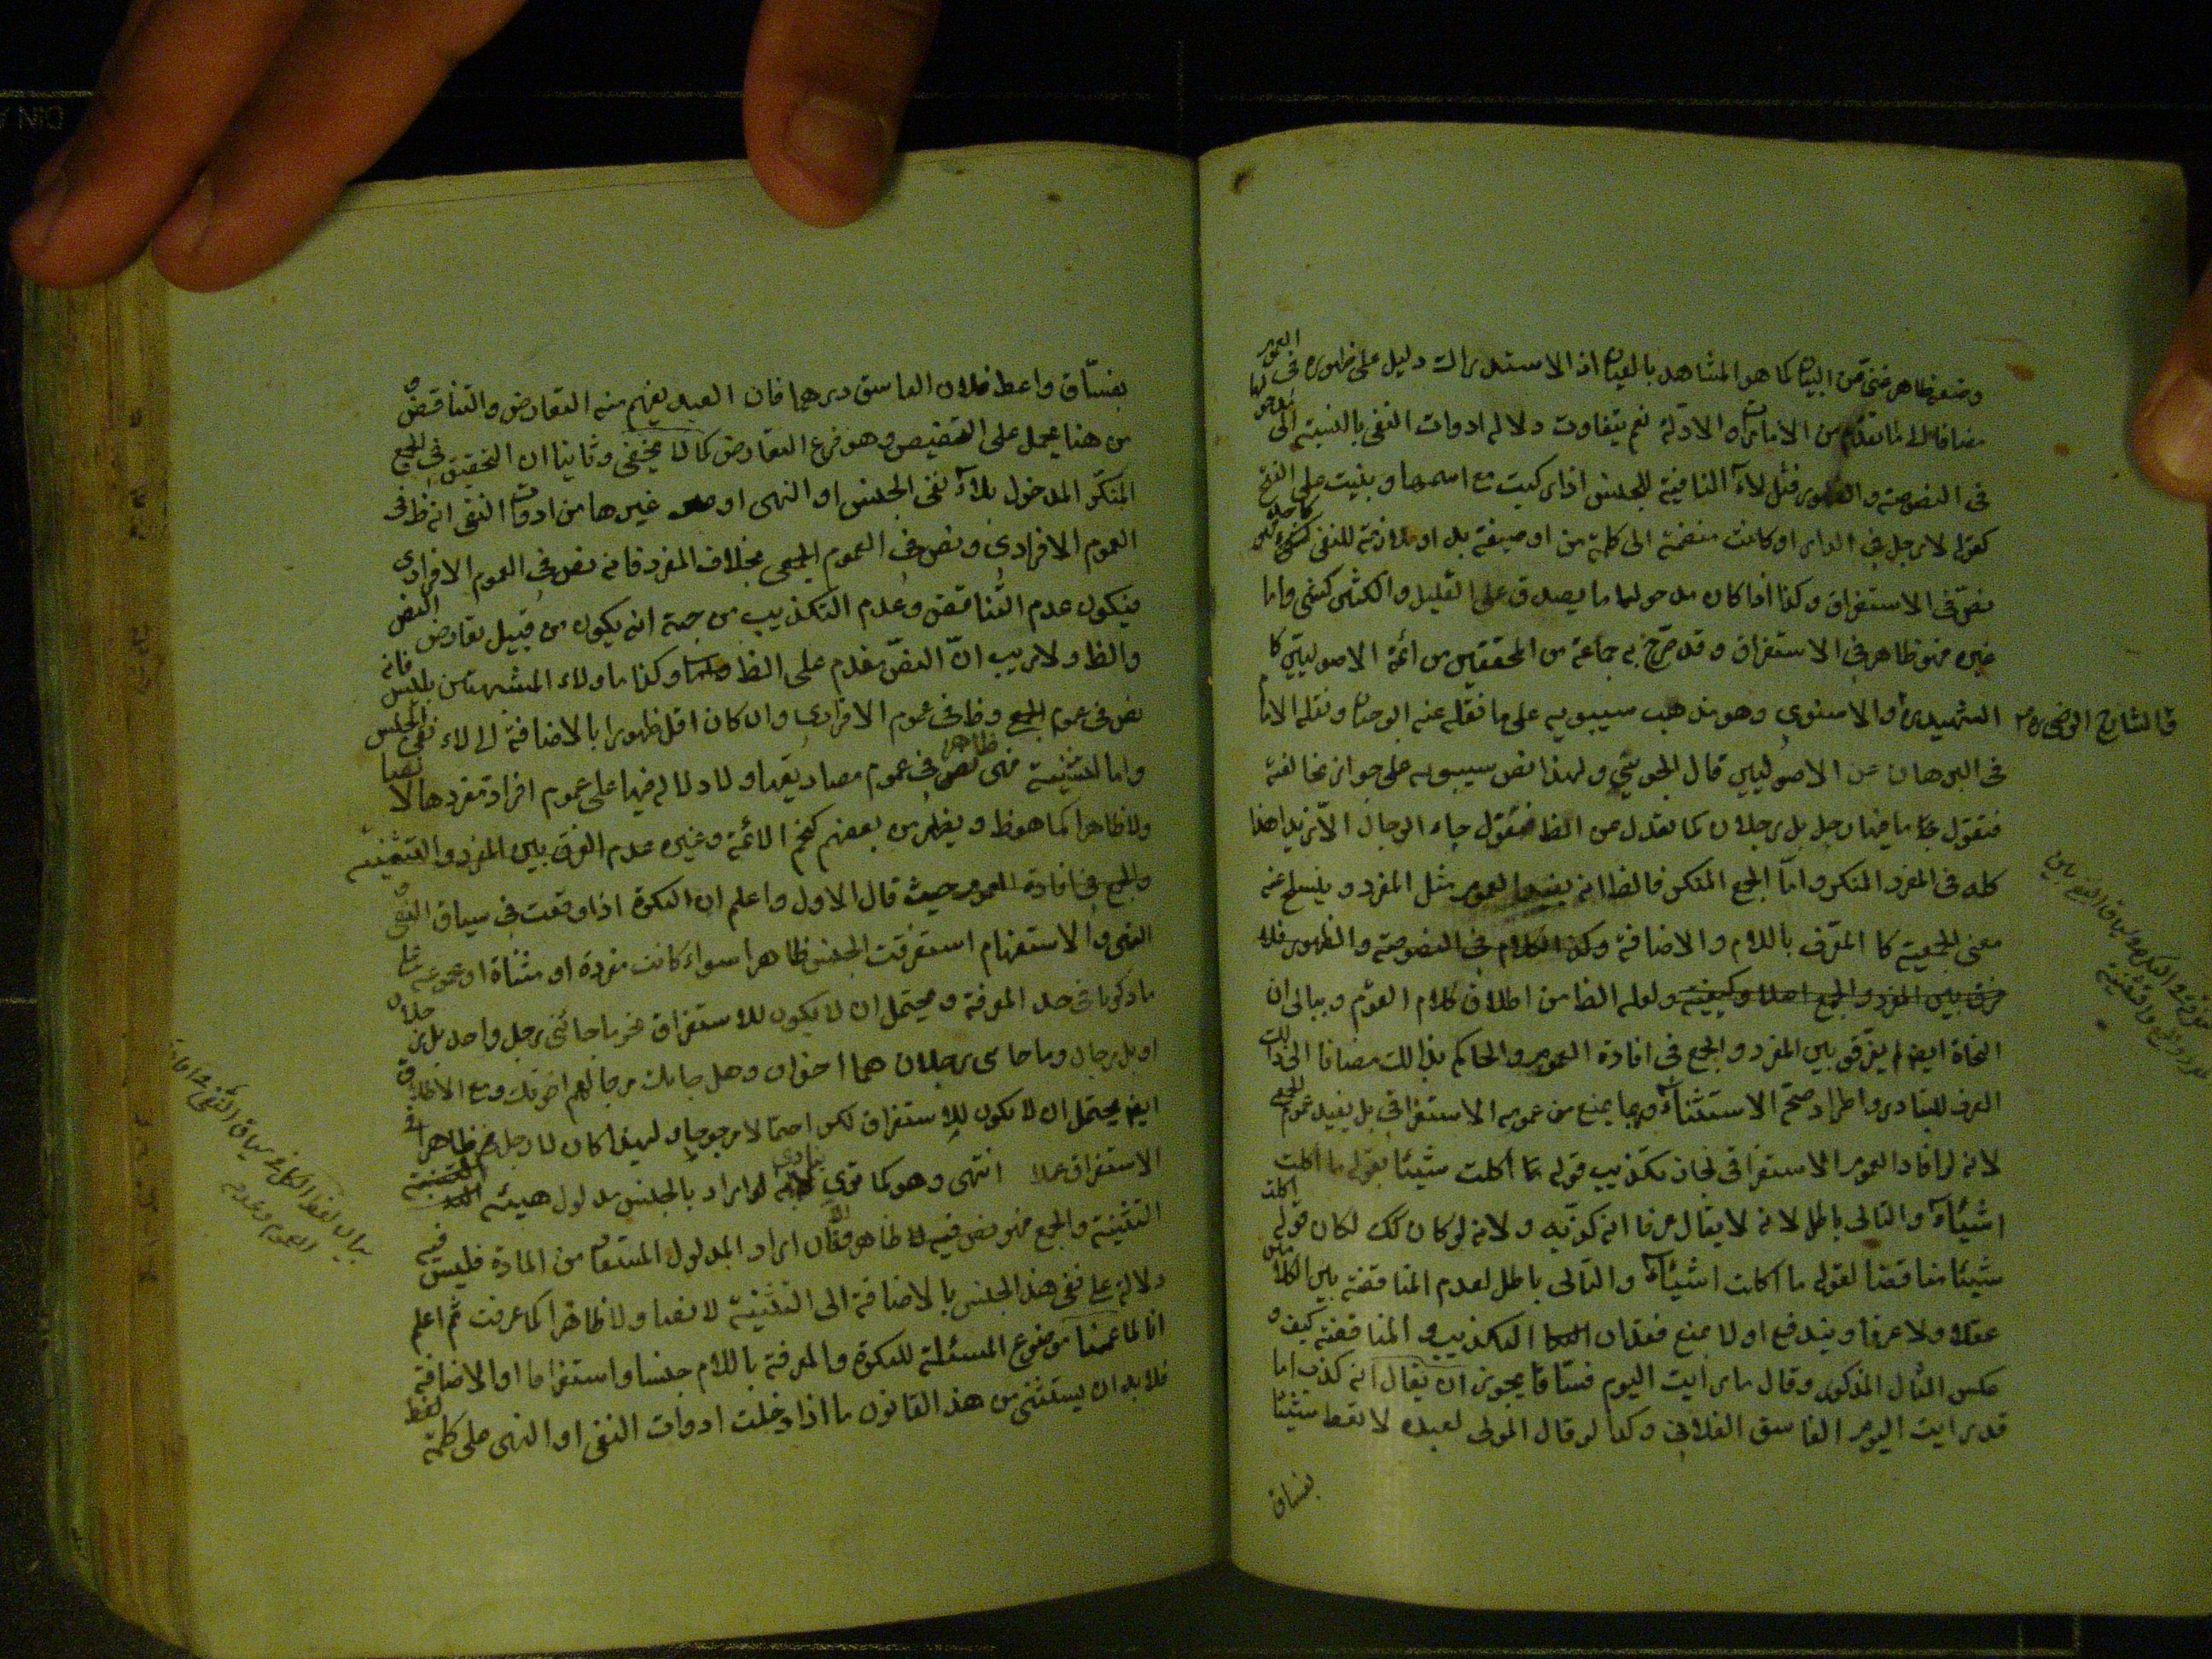 وضعه ظاهر غنى عن البيان كما هو المشاهد بالعيان اذ الاستدراك دليل على ظهوره فى العموم
مضافا الى ما تقدم من الامارات والادلة نعم يتفاوت دلالة ادوات النفى بالنسبة الى مدخولها
فى النصوصة والظهور فمثل لاء النافية للجنس اذا ركبت مع اسمها وبنيت على الفتح
كقوله لا رجل فى الدار او كانت منضمة الى كلمة من او صيغة بد او ملازمة للنفى كاحد
نص فى الاستغراق وكذا اذا كان مدخولها ما يصدق على القليل والكثير كشئ واما
غيره فهو ظاهر فى الاستغراق وقد صرح به جماعة من المحققين من ائمة الاصوليين كا
الشهيد والاسنوى وهو مذهب سيبويه على ما نقله عنه ابو حيان ونقله الامام
فى البرهان عن الاصوليين قال الجوينى ولهذا نص سيبويه على جواز مخالفته
فتقول ما فيها رجل بل رجلان كما تعدل عن الظ فتقول جاء الرجال الا زيدا هذا
كله فى المفرد المنكر واما الجمع المنكر فالظ انه يفيد العموم مثل المفرد وينسلخ عنه
معنى الجمعية كا المعرف باللام والاضافة وكذا الكلام فى النصوصة والظهور فلا
فرق بين المفرد والجمع اصلا وكيفية ولعله الظ من اطلاق كلام القوم وببالى ان
النحاة ايضا لم يفرقو بين المفرد والجمع فى افادة العموم والحاكم بذالك مضافا الى ذالك
العرف للتبادر واطراد صحة الاستثناء وربما يمنع من عمومه الاستغراقى بل يفيد عموم الجمع
لانه لو افاد العموم الاستغراقى لجاز تكذيب قوله اكلت شيئا بقوله ما اكلت
اشياء والتالى باطل لانه لا يقال عرفا انه كذبه ولانه لو كان كك لكان قوله اكلت
شيئا مناقضا لقوله ما اكلت اشياء والتالى باطل لعدم المناقضة بين الكلامين
عقلا ولا عرفا ويندفع اولا بمنع فقدان التكذيب والمناقضة كيف و
عكس المثال المذكور وقال ما رايت اليوم فساقا يجوز ان يقال انه كذب اما
قد رايت اليوم الفاسق الفلانى وكذا لو قال المولى لعبده لا تعط شيئا
بفساق
بفساق واعط فلان الفاسق درهما فان العبد يفهم منه التعارض والتناقض و
من هنا يحمل على التخصيص وهو فرع التعارض كما لا يخفى وثانيا ان التحقيق فى الجمع
المنكر المدخول بلاء نفى الجنس او النهى او غيرها من ادوات النفى انه ظ فى
العموم الافرادى ونص فى العموم الجمعى بخلاف المفرد فانه نص فى العموم الافرادى
فيكون عدم التناقض وعدم التكذيب من جهة انه يكون من قبيل تعارض النص
والظ ولا ريب ان النص مقدم على الظ وكذا ما ولاء المشبهتين بليس فانه
نص فى عموم الجمع وظ فى عموم الافرادى وان كان اقل ظهورا بالاضافة الى لاء نفى الجنس
واما التثنية فهى ظاهر فى عموم مصاديقها ولا دلالة فيها على عموم افراد مفردها لا نصا
ولا ظاهرا كما هو ظ ويظهر من بعضهم كنجم الائمة وغيره عدم الفرق بين المفرد والتثنية
والجمع فى افادة العموم حيث قال الاول واعلم ان النكرة اذا وقعت فى سياق النفى و
النهى والاستفهام استغرقت الجنس ظاهرا سواء كانت مفردة او مثناة او مجموعة على
ما ذكرنا فى حد المعرفة ويحتمل ان لا يكون للاستغراق نحو ما جائنى رجل واحد بل رجلان
او بل رجال وما جاءنى رجلان هما اخوان وهل جاءك رجالهم اخوتك ومع الاطلاق
ايضا يحتمل ان لا يكون للاستغراق لكن احتمالا مرجوحا ولهذا كان لا رجل ظاهرا فى
الاستغراق انتهى وهو كما ترى لانه لو اراد بالجنس مدلول هيئة التثنية
التثنية والجمع فهو نص فيه لا ظاهر وان اراد المدلول المستفاد من المادة فليس فيه
دلالة على نفى هذا الجنس بالاضافة الى التثنية لا نصا ولا ظاهرا كما عرفت ثم اعلم
انا لما عممنا موضوع المسئلة للنكرة والمعرفة باللام جنسا واستغراقا او الاضافة
فلا بد ان يستثنى من هذا القانون ما اذا دخلت ادوات النفى او النهى على كلمة لفظ
بيان لفظ الكل فى سياق النفى فى افادة
العموم وعدمه